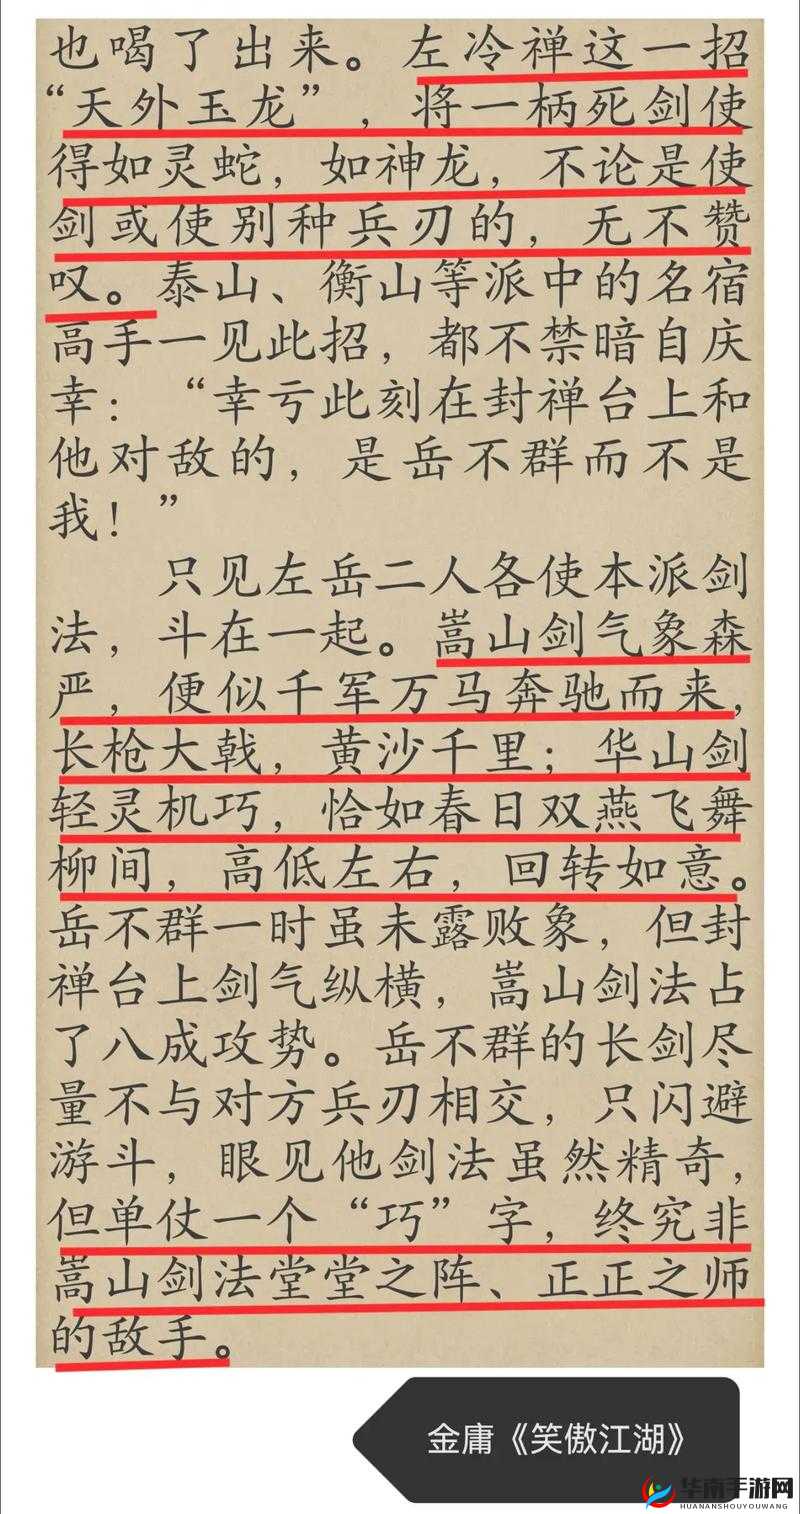 也喝了出来。左冷禅这一招
“天外玉龙”，将一柄死剑使
得如灵蛇，如神龙，不论是使
剑或使别种兵刃的，无不赞
叹。泰山、衡山等派中的名宿
高手一见此招，都不禁暗自庆
幸：“幸亏此刻在封禅台上和
他对敌的，是岳不群而不是
我！”
只见左岳二人各使本派剑
法，斗在一起。嵩山剑气象森
严，便似千军万马奔驰而来，
长枪大戟，黄沙千里；华山剑
轻灵机巧，恰如春日双燕飞舞
柳间，高低左右，回转如意。
岳不群一时虽未露败象，但封
禅台上剑气纵横，嵩山剑法占
了八成攻势。岳不群的长剑尽
量不与对方兵刃相交，只闪避
游斗，眼见他剑法虽然精奇，
但单仗一个“巧”字，终究非
嵩山剑法堂堂之阵、正正之师
的敌手。
金庸《笑傲江湖》
华南手游网
HUANANSHOUYOUWANG